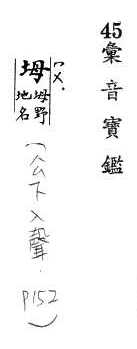 45彙音寶鑑
ㄇㄨ.
坶 坶野地名
(公下入聲. P152)